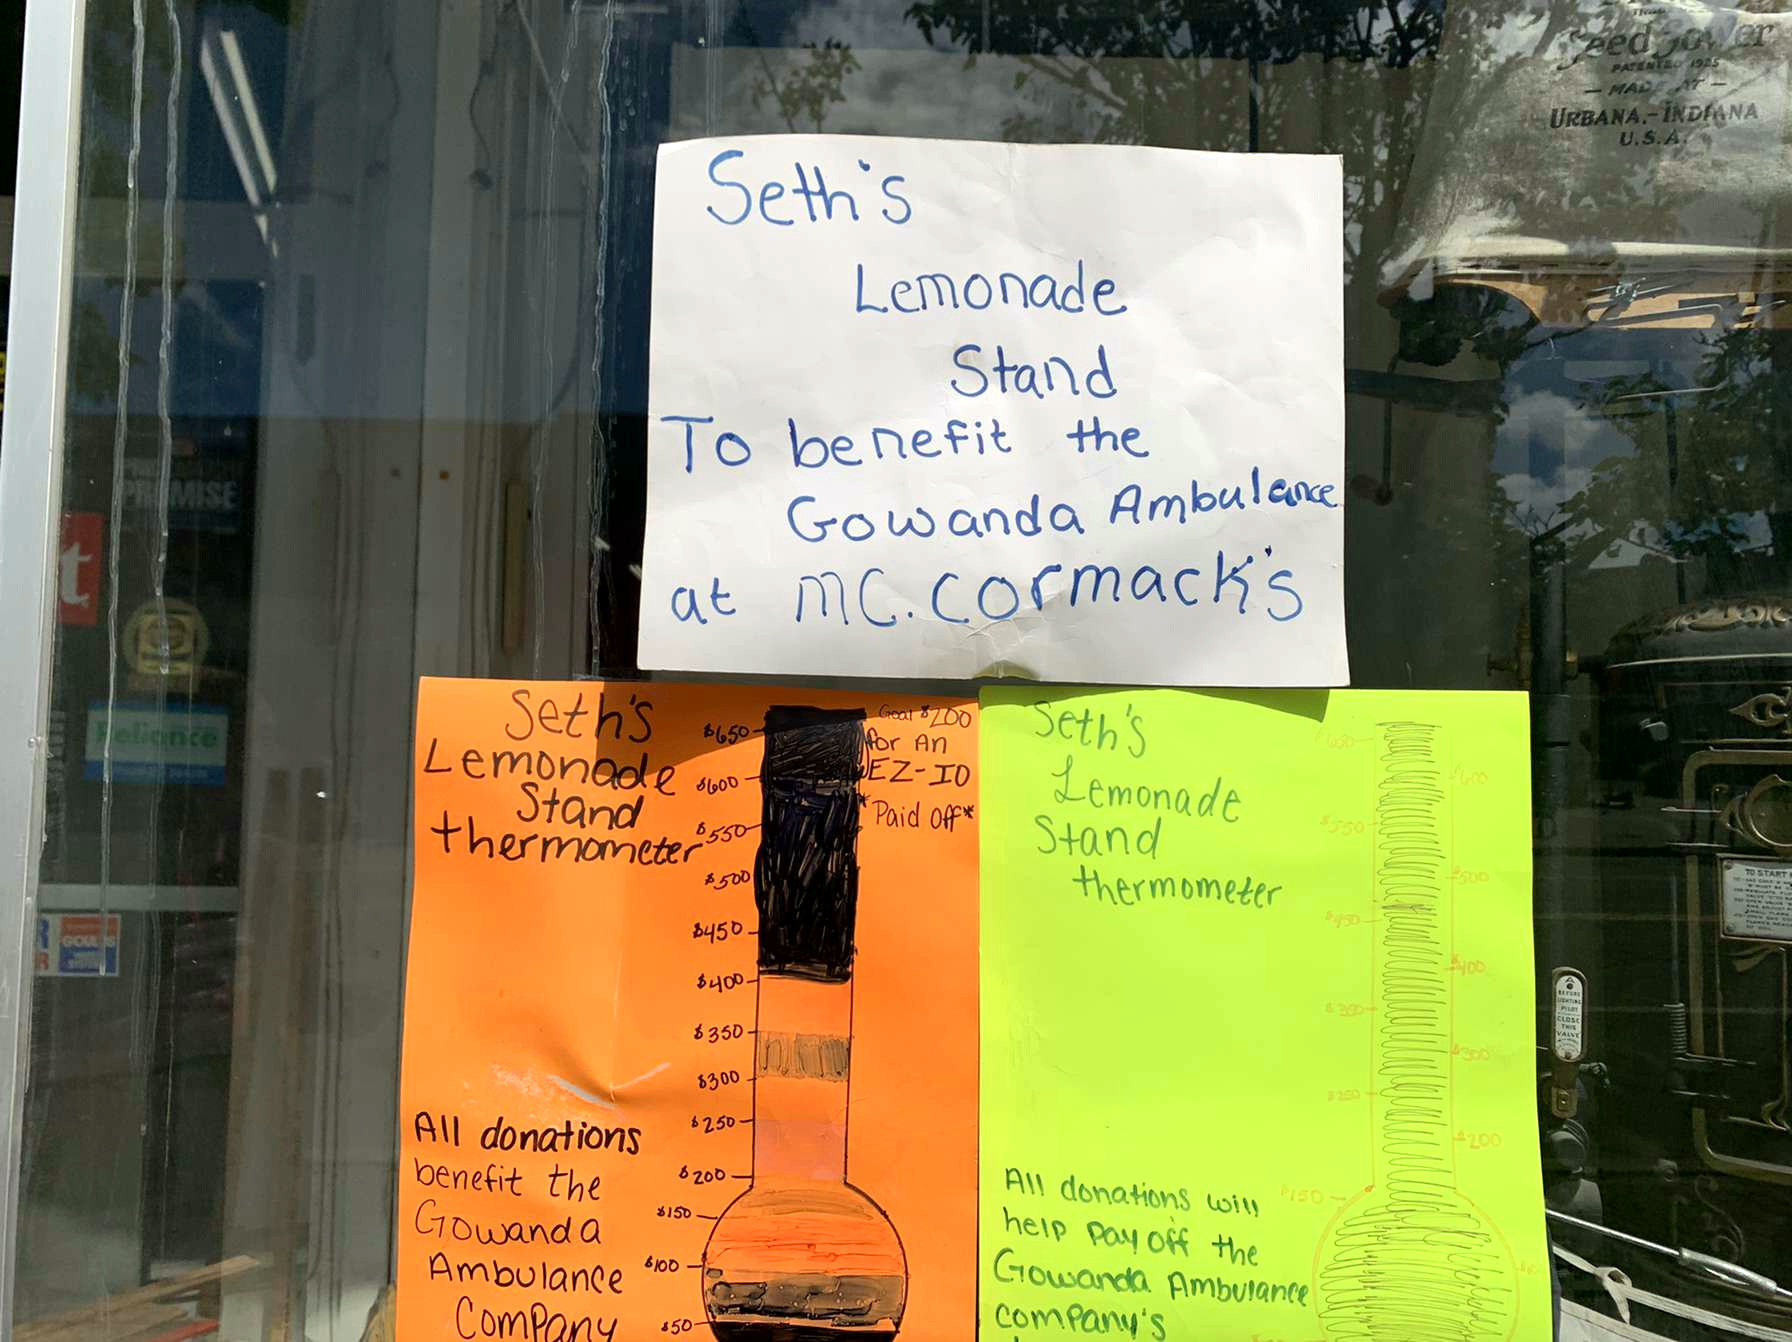 Seed Sower
PATENTED 1925
— MADE AT —
URBANA.-INDIANA
U.S.A.
Seth's
Lemonade
Stand
To benefit the
Gowanda Ambulance
at MC.CORMACK'S
PROMISE
t
Reliance
GOULDS
Seth's
Lemonade
Stand
thermometer
Goal $200
for An
EZ-IO
*Paid off*
$650
$600
$550
$500
$450
$400
$350
$300
$250
$200
$150
$100
$50
All donations
benefit the
Gowanda
Ambulance
Company
Seth's
Lemonade
Stand
thermometer
$650
$600
$550
$500
$450
$400
$350
$300
$250
$200
$150
All donations will
help pay off the
Gowanda Ambulance
company's
TO START
BEFORE
LIGHTING
PILOT
CLOSE
THIS
VALVE